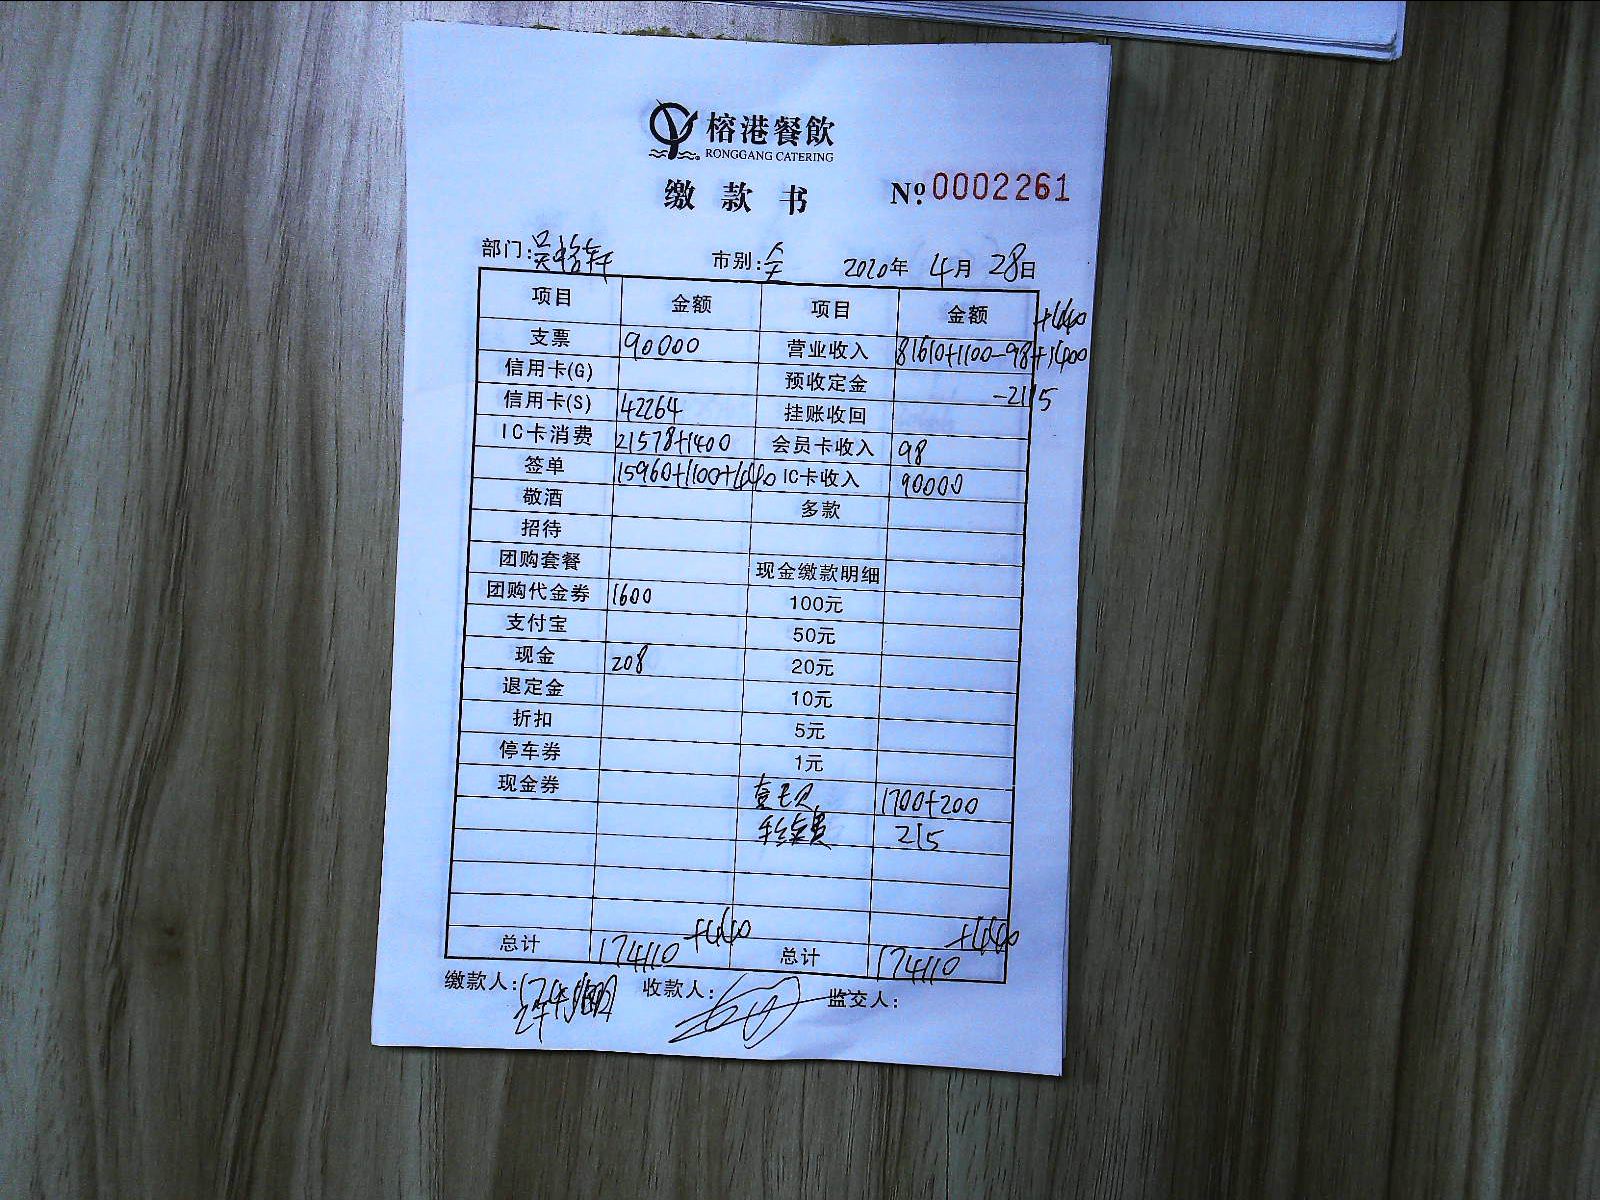 榕港餐飲
RONGGANG CATERING
缴款书 Nº:0002261
部门: 市别:全 2020年 4月 28日
项目 金额 项目 金额 +440
支票 90000 营业收入 81610+1100-98+1400
信用卡(G) 预收定金 -2115
信用卡(S) 42264 挂账收回
IC卡消费 21578+1400 会员卡收入 98
签单 15960+1100+440 IC卡收入 90000
敬酒 多款
招待
团购套餐 现金缴款明细
团购代金券 1600 100元
支付宝 50元
现金 208 20元
退定金 10元
折扣 5元
停车券 1元
现金券 1700+200
手续费 215
总计 174110 +440 总计 174110 +440
缴款人: 收款人: 监交人: